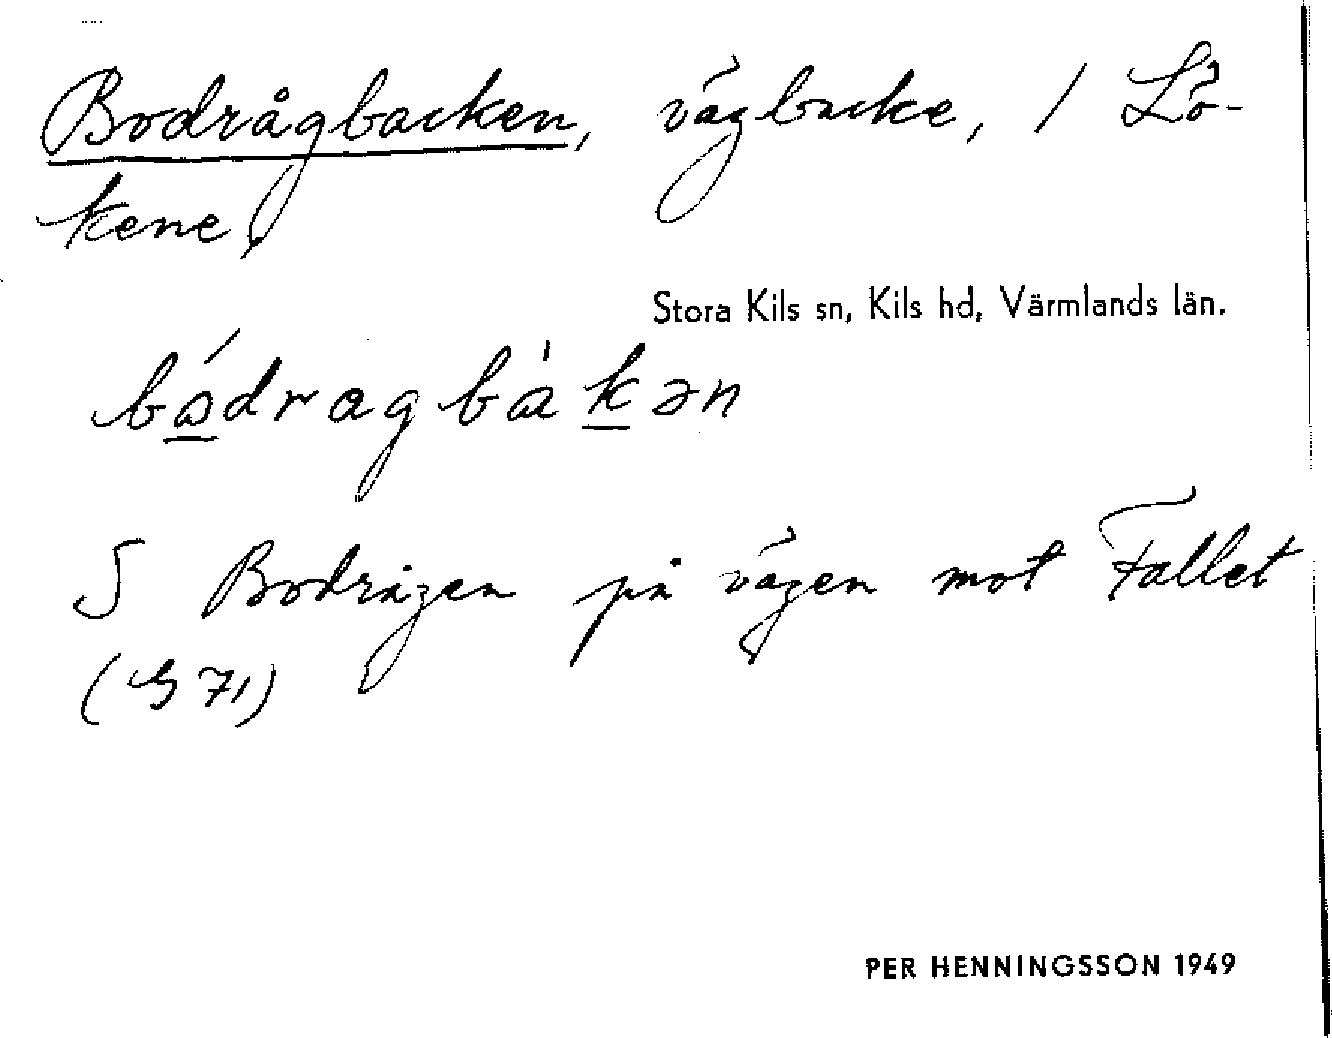 Bodrågbacken, vägbacke, 1 Lö-
kene,
Stora Kils sn, Kils hd, Värmlands län.
bódragbàkən
S Bodrågen på vägen mot Fallet
(G 71)
PER HENNINGSSON 1949